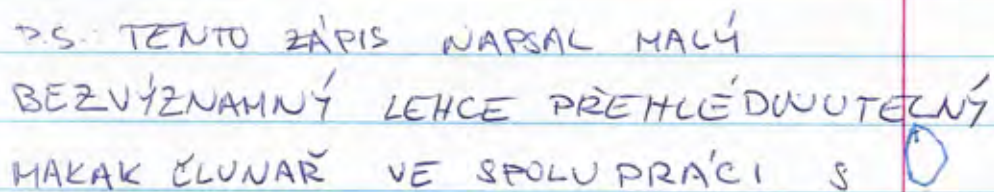 P.S. TENTO ZÁPIS NAPSAL MALÝ
BEZVÝZNAMNÝ LEHCE PŘEHLÉDNUTELNÝ
MAKAK ČLUNAŘ VE SPOLUPRÁCI S